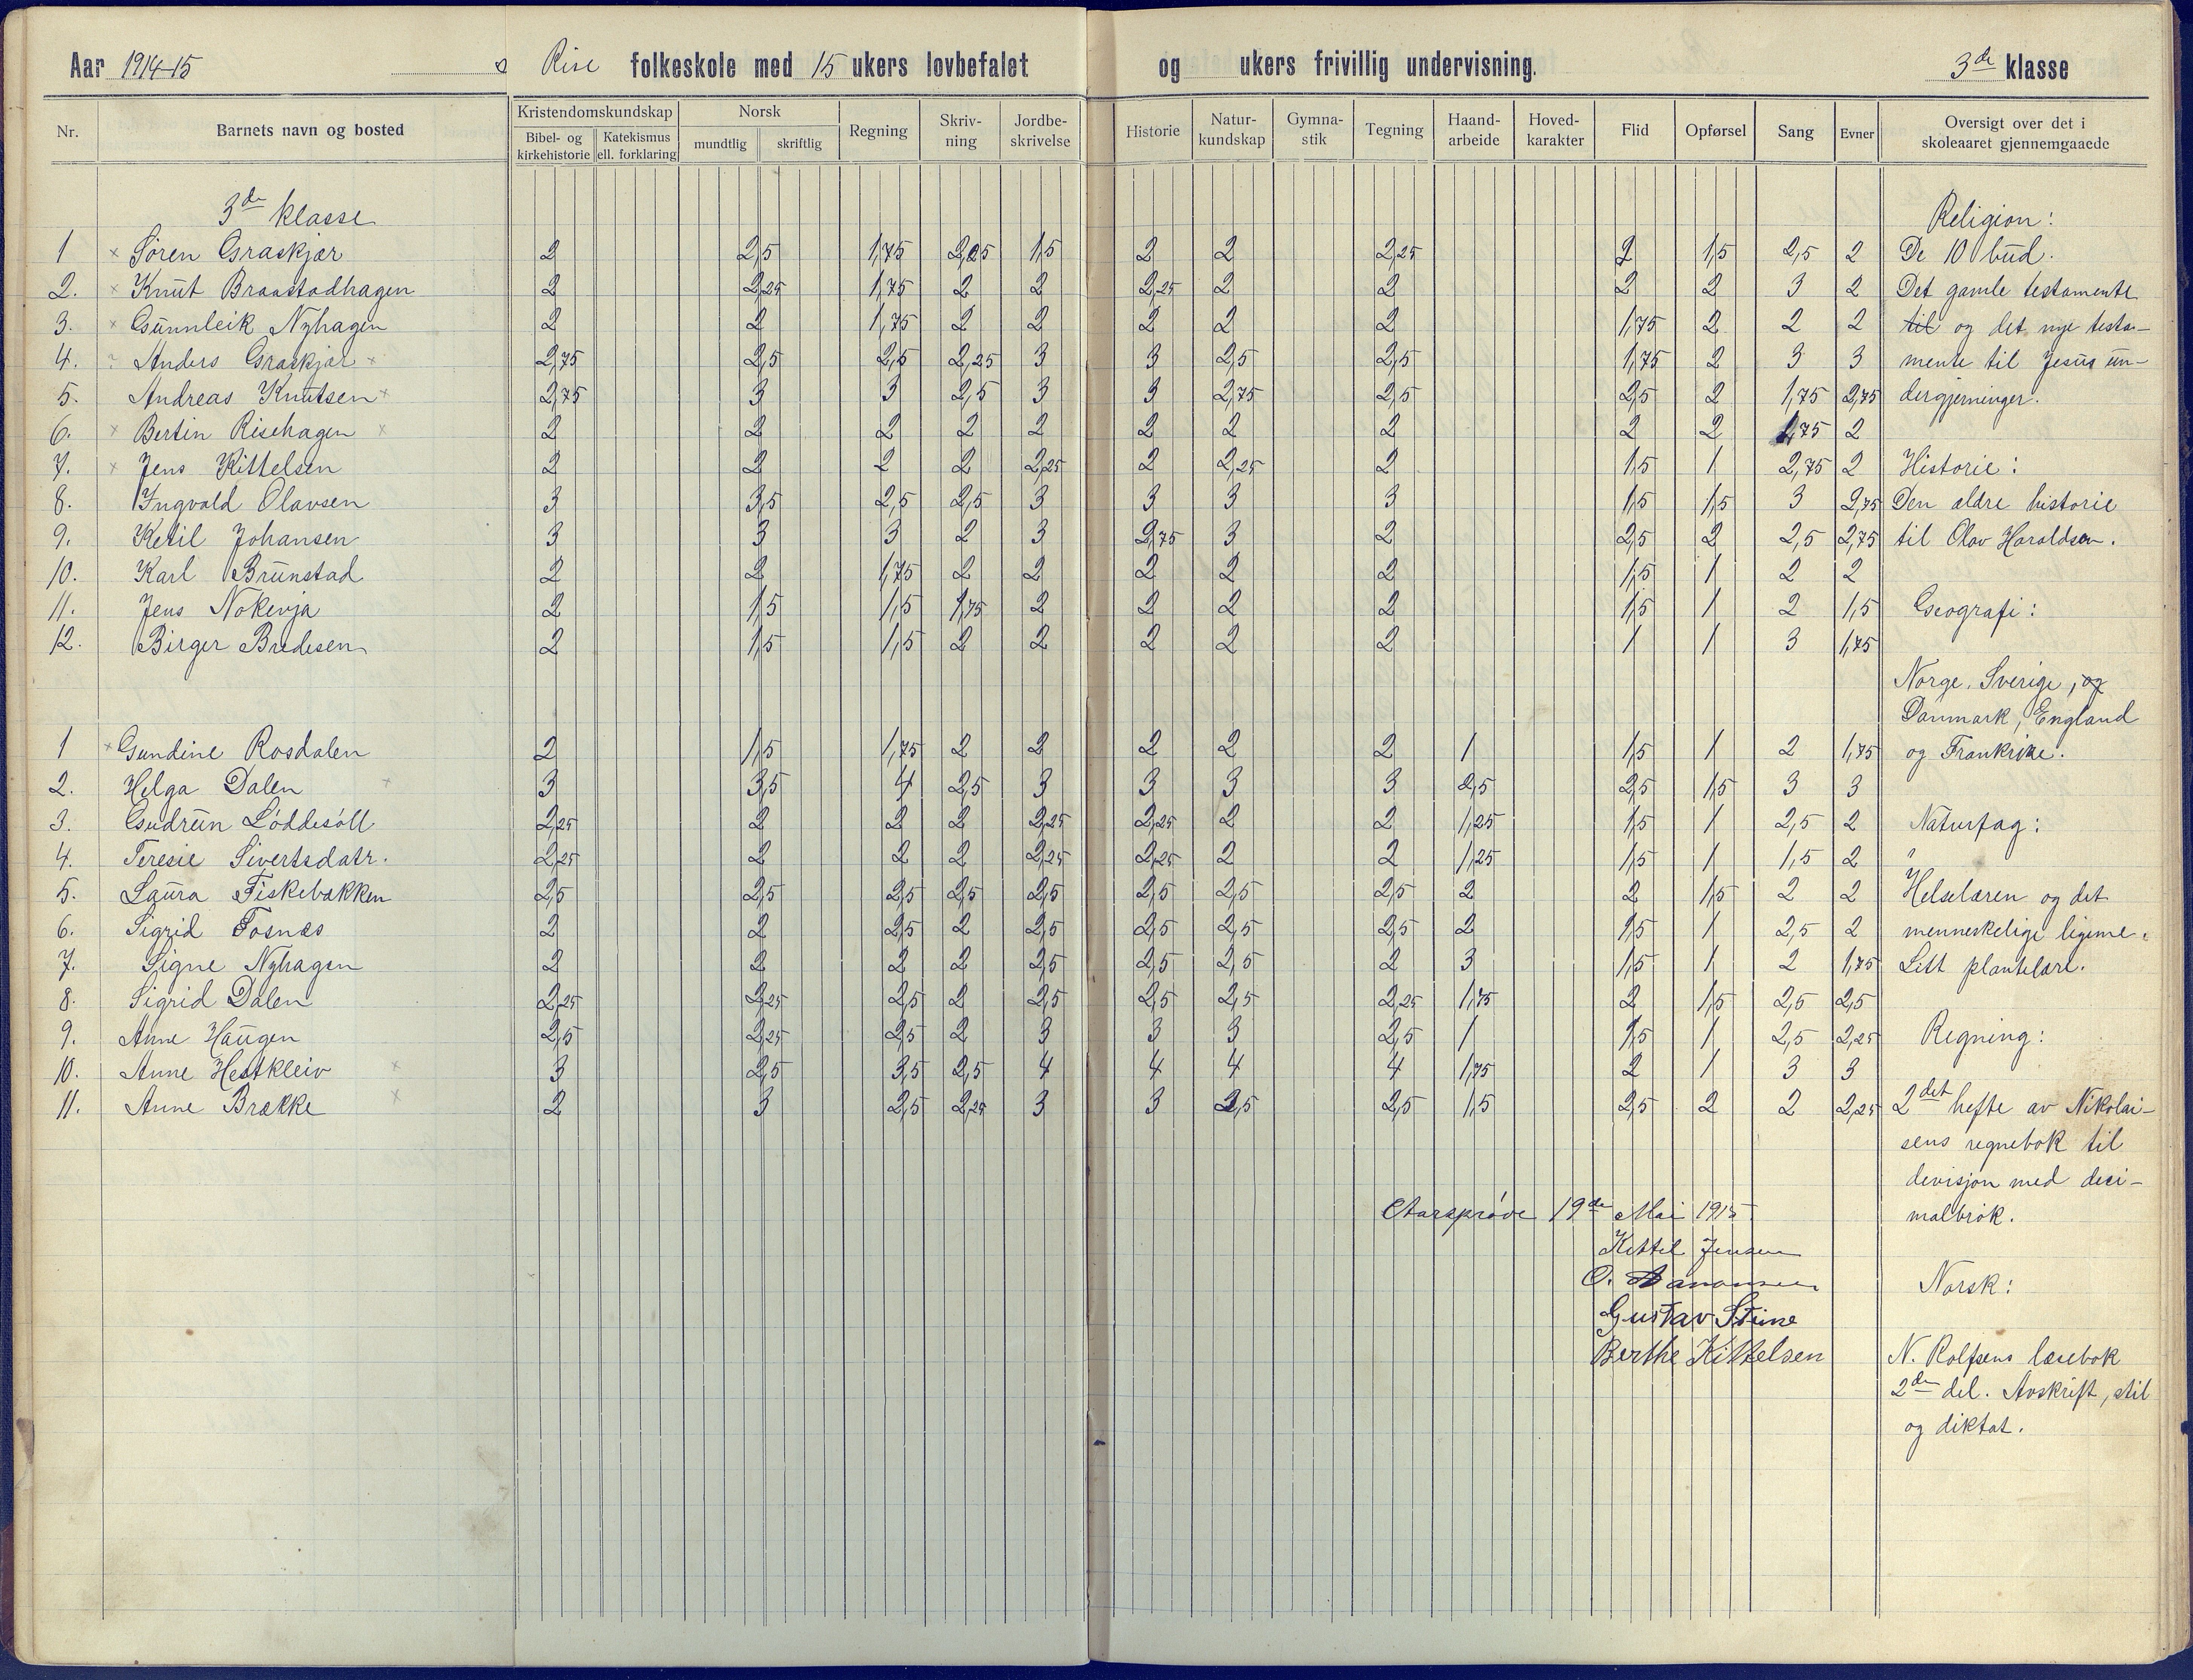 Aar 1914-15 Rise folkeskole med 15 ukers lovbefalet og ukers frivillig undervisning. 3de klasse
Nr. Barnets navn og bosted Kristendomskundskap Bibel- og kirkehistorie Katekismus ell. forklaring Norsk mundtlig skriftlig Regning Skriv-ning Jordbe-skrivelse Historie Natur-kundskap Gymna-stik Tegning Haand-arbeide Hoved-karakter Flid Opførsel Sang Evner Oversigt over det i skoleaaret gjennemgaaede
3de klasse Religion:
1 × Søren Graskjær 2 2,5 1,75 2,25 1,5 2 2 2,25 2 1,5 2,5 2 De 10 bud.
2. × Knut Braastadhagen 2 2,25 1,75 2 2 2,25 2 2 2 2 3 2 Det gamle testamente
3. × Gunnleik Nyhagen 2 2 1,75 2 2 2 2 2 1,75 2 2 2 til og det nye testa-
4. Anders Graskjær × 2,75 2,5 2,5 2,25 3 3 2,5 2,5 1,75 2 3 3 mente til Jesus un-
5. Andreas Knutsen × 2,75 3 3 2,5 3 3 2,75 2,5 2,5 2 1,75 2,75 dergjerninger.
6. × Bertin Risehagen × 2 2 2 2 2 2 2 2 2 2 1,75 2
7. × Jens Kittelsen 2 2 2 2 2,25 2 2,25 2 1,5 1 2,75 2 Historie:
8. Ingvald Olavsen 3 3,5 2,5 2,5 3 3 3 3 1,5 1,5 3 2,75 Den ældre historie
9. Ketil Johansen 3 3 3 2 3 2,75 3 2 2,5 2 2,5 2,75 til Olav Haraldson.
10. Karl Brunstad 2 2 1,75 2 2 2 2 2 1,5 1 2 2
11. Jens Nokevja 2 1,5 1,5 1,75 2 2 2 2 1,5 1 2 1,5 Geografi:
12. Birger Bredesen 2 1,5 1,5 2 2 2 2 2 1 1 3 1,75
Norge, Sverige, og
Danmark, England
1 × Gundine Rosdalen 2 1,5 1,75 2 2 2 2 2 1 1,5 1 2 1,75 og Frankrike.
2. Helga Dalen × 3 3,5 4 2,5 3 3 3 3 2,5 2,5 1,5 3 3
3. Gudrun Løddesøll 2,25 2 2 2 2,25 2,25 2 2 1,25 1,5 1 2,5 2 Naturfag:
4. Teresie Sivertsdatr. 2,25 2 2 2 2,25 2,25 2 2 1,25 1,5 1 1,5 2
5. Laura Fiskebækken 2,5 2,5 2,5 2,5 2,5 2,5 2,5 2,5 2 2 1,5 2 2 Helselæren og det
6. Sigrid Fosnæs 2 2 2,5 2 2,5 2,5 2,5 2,5 2 1,5 1 2,5 2 menneskelige legeme.
7. Signe Nyhagen 2 2 2 2 2,5 2,5 2,5 2 3 1,5 1 2 1,75 Litt plantelære.
8. Sigrid Dalen 2,25 2,25 2,5 2 2,5 2,5 2,5 2,25 1,75 2 1,5 2,5 2,5
9. Anne Haugen 2,5 2,25 2,5 2 3 3 3 2,5 1 1,5 1 2,5 2,25 Regning:
10. Anne Hestkleiv × 3 2,5 3,5 2,5 4 4 4 4 1,75 2 1 3 3
11. Anne Brække × 2 3 2,5 2,25 3 3 2,5 2,5 1,5 2,5 2 2 2,25 2det hefte av Nikolai-
sens regnebok til
devisjon med desi-
Aarsprøve 19de Mai 1915 malbrøk.
Kittel Jensen
Norsk:
Gustav Stine
Berthe Kittelsen N. Rolfsens læsebok
2den del. Avskrift, stil
og diktat.